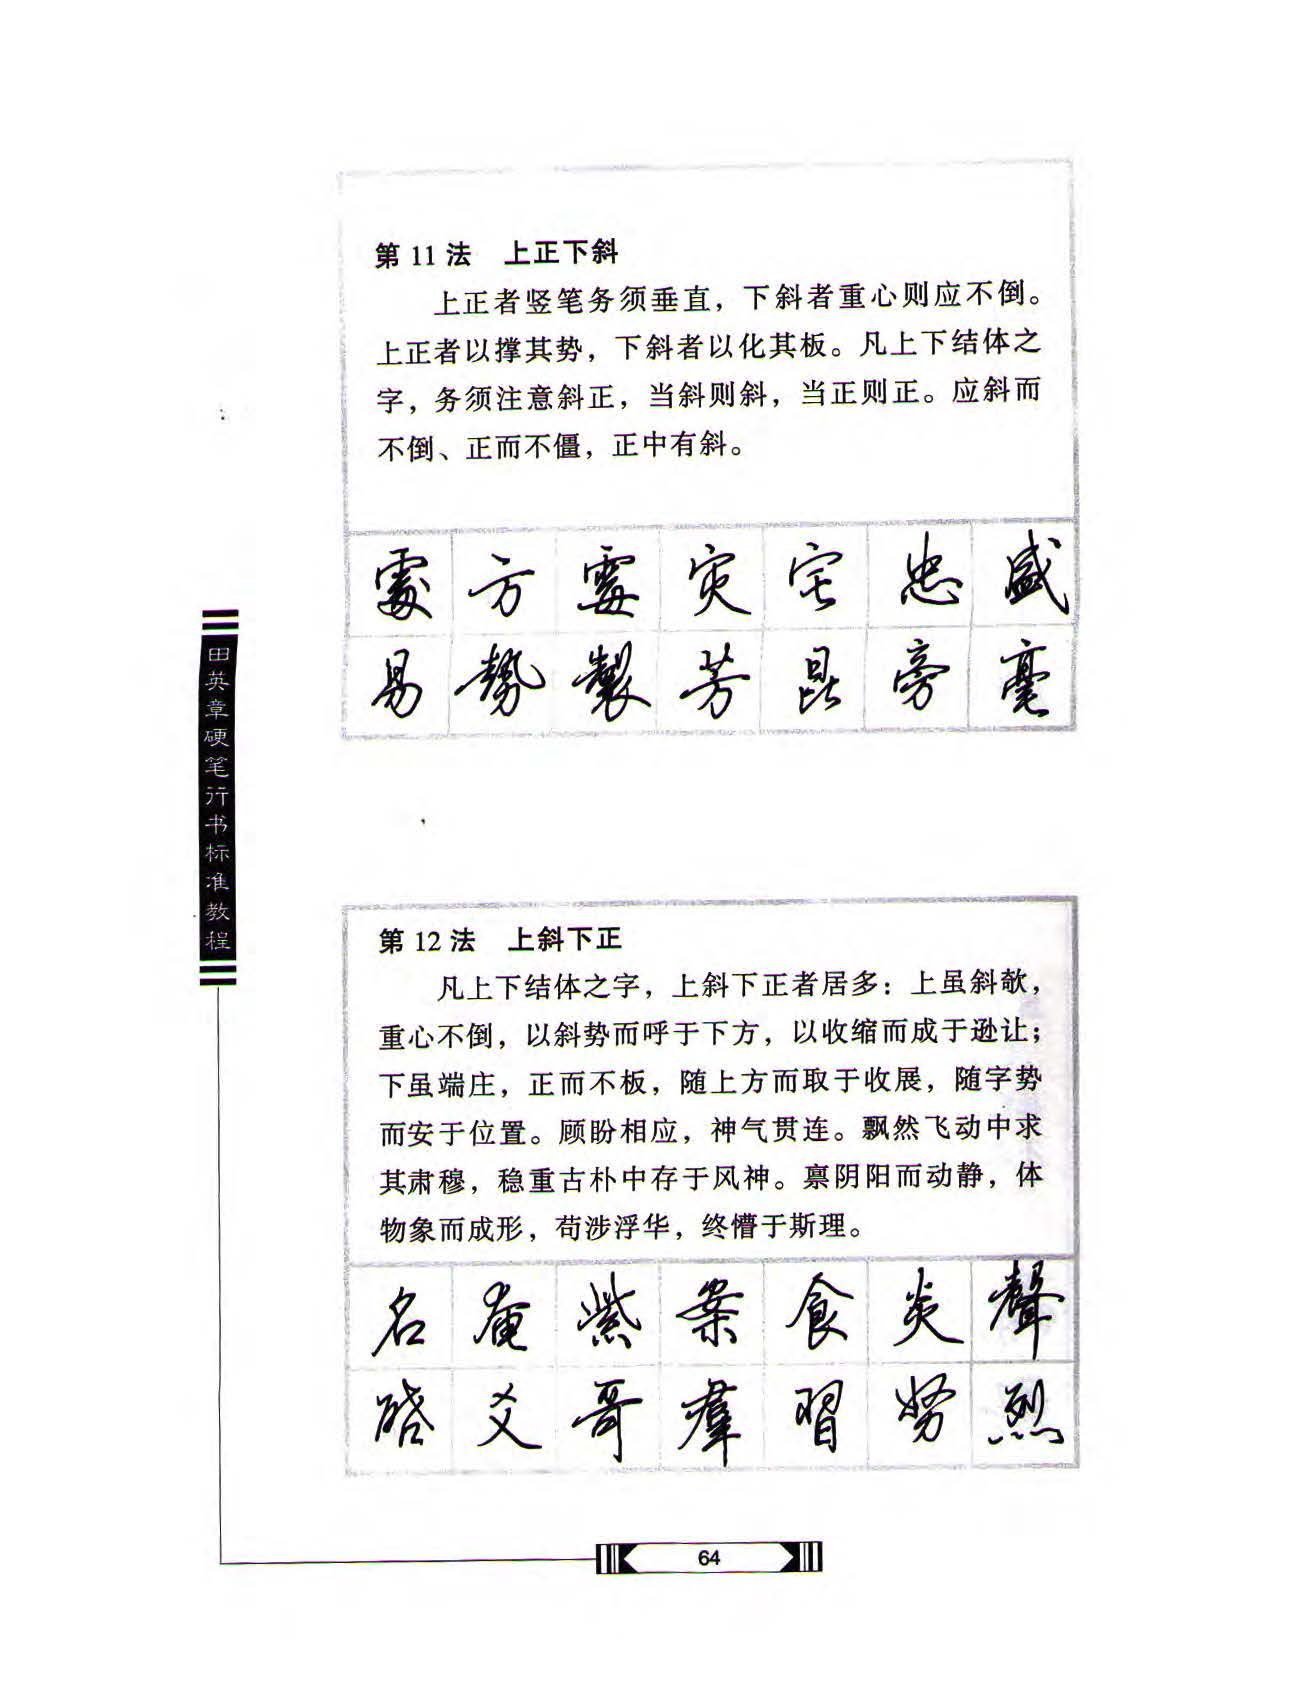 第 11 法　上正下斜
上正者竖笔务须垂直，下斜者重心则应不倒。
上正者以撑其势，下斜者以化其板。凡上下结体之
字，务须注意斜正，当斜则斜，当正则正。应斜而
不倒、正而不僵，正中有斜。
方 灾 宅 忠 盛
易 勢 製 芳 昆 旁 毫
田英章硬笔行书标准教程
第 12 法　上斜下正
凡上下结体之字，上斜下正者居多：上虽斜欹，
重心不倒，以斜势而呼于下方，以收缩而成于逊让；
下虽端庄，正而不板，随上方而取于收展，随字势
而安于位置。顾盼相应，神气贯连。飘然飞动中求
其肃穆，稳重古朴中存于风神。禀阴阳而动静，体
物象而成形，苟涉浮华，终懵于斯理。
名 奄 紫 案 食 炎 聲
爻 哥 羣 習 努 烈
64